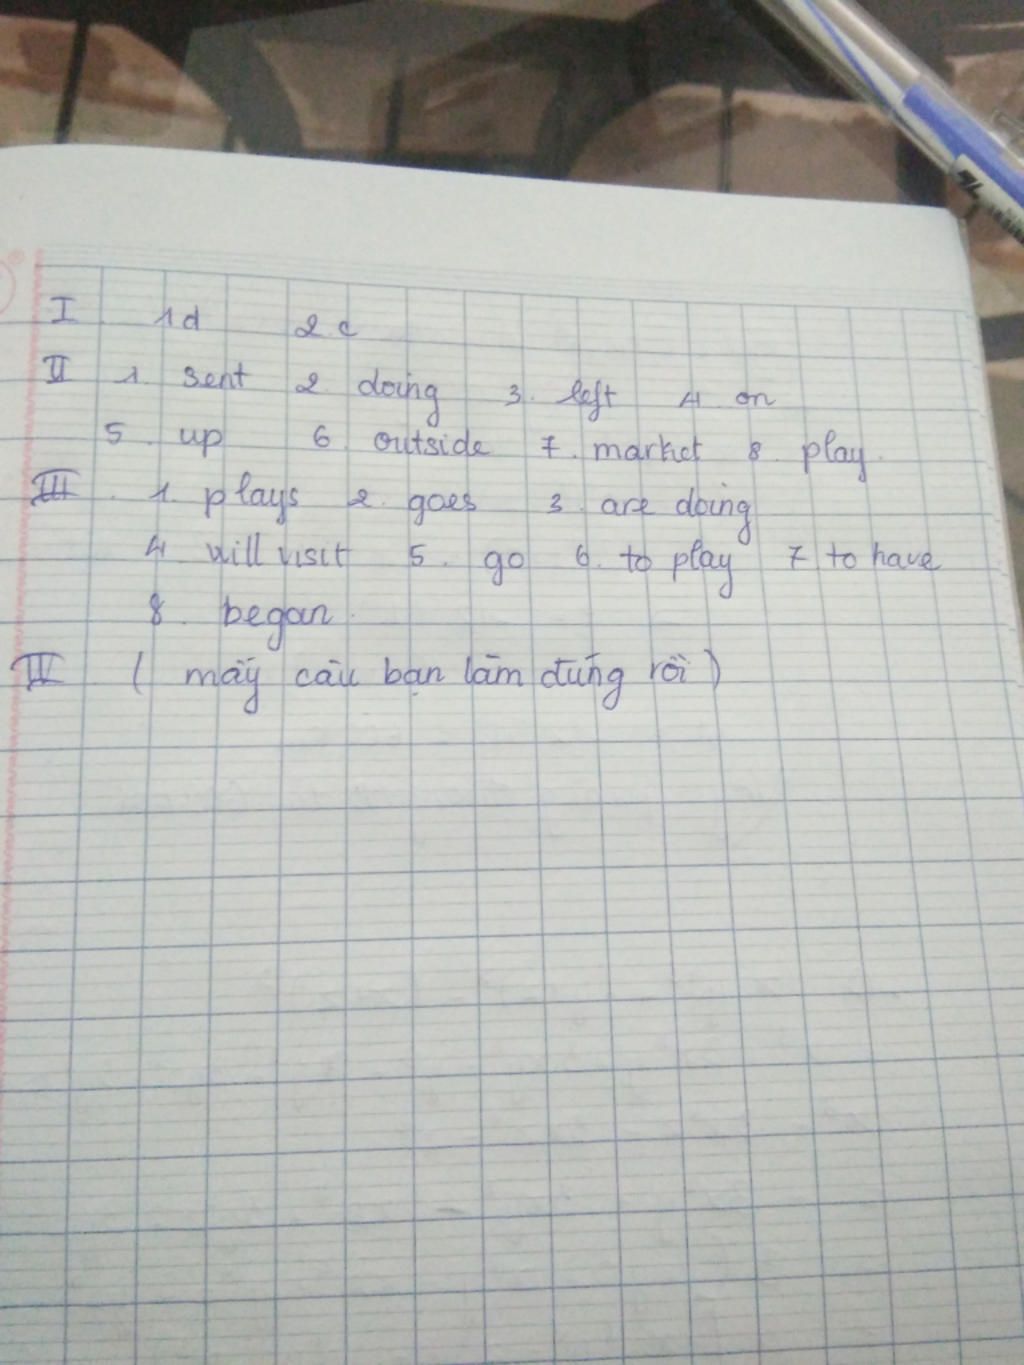 I 1d 2 c
II 1. sent 2 doing 3. left 4 on
5. up 6 outside 7. market 8. play.
III. 1. plays 2. goes 3. are doing
4 will visit 5. go 6. to play 7 to have
8. began.
III ( mấy câu bạn làm đúng rồi )